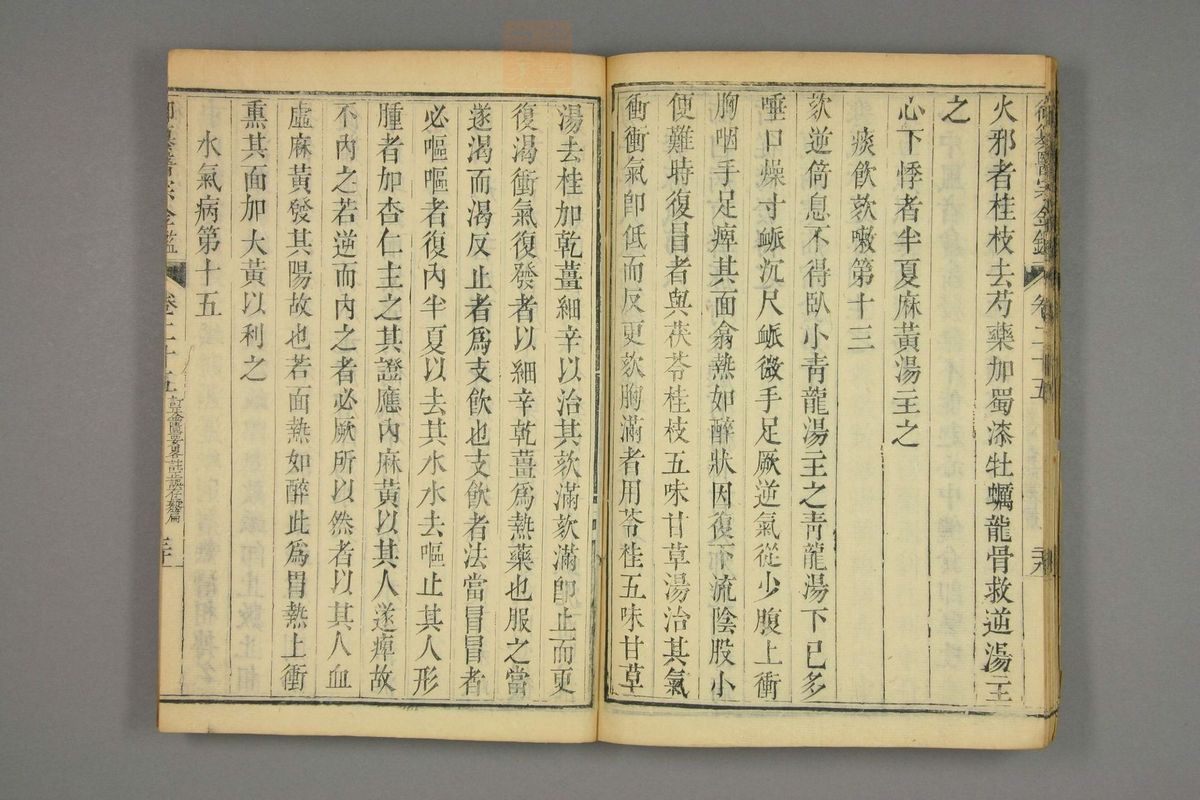 御纂醫宗金鑑 卷二十五
火邪者桂枝去芍藥加蜀漆牡蠣龍骨救逆湯主
之
心下悸者半夏麻黃湯主之
痰飲欬嗽第十三
欬逆倚息不得臥小靑龍湯主之靑龍湯下已多
唾口燥寸脈沉尺脈微手足厥逆氣從少腹上衝
胸咽手足痺其面翕熱如醉狀因復下流陰股小
便難時復冒者與茯苓桂枝五味甘草湯治其氣
衝衝氣卽低而反更欬胸滿者用苓桂五味甘草
湯去桂加乾薑細辛以治其欬滿欬滿卽止而更
復渴衝氣復發者以細辛乾薑爲熱藥也服之當
遂渴而渴反止者爲支飮也支飮者法當冒冒者
必嘔嘔者復內半夏以去其水水去嘔止其人形
腫者加杏仁主之其證應內麻黃以其人遂痺故
不內之若逆而內之者必厥所以然者以其人血
虛麻黃發其陽故也若面熱如醉此爲胃熱上衝
熏其面加大黃以利之
水氣病第十五
御纂醫宗金鑑 卷二十五